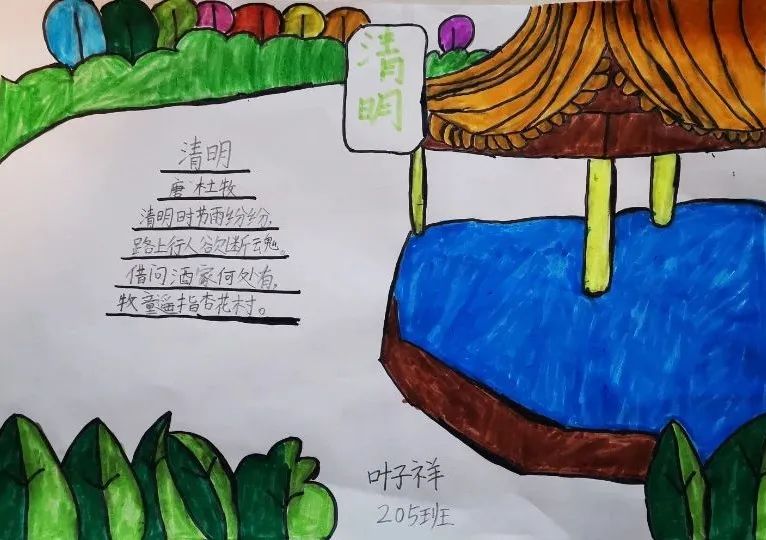 清明
清明
唐 杜牧
清明时节雨纷纷,
路上行人欲断魂。
借问酒家何处有,
牧童遥指杏花村。
叶子祥
205班